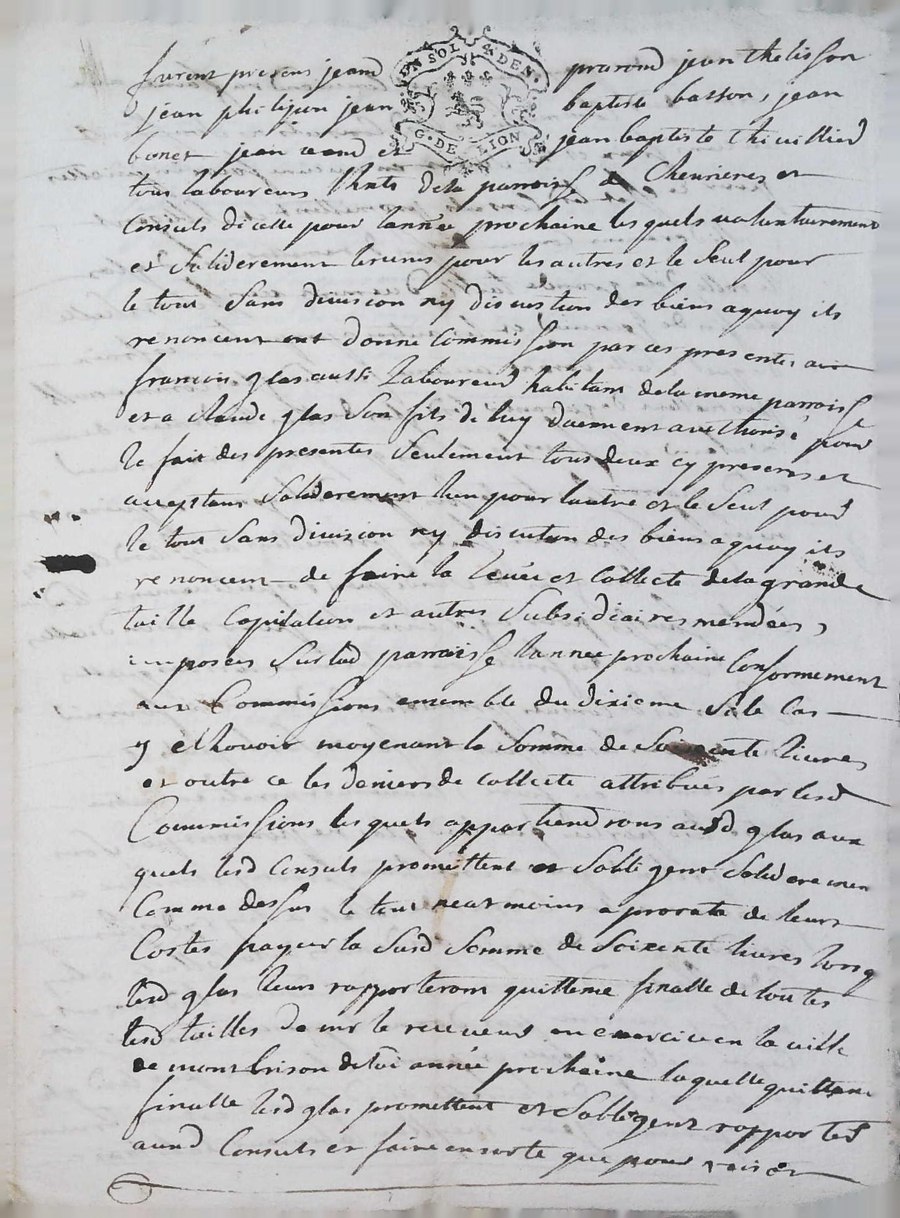 furent presens jean prarond jean thelisson
EN SOL & DEN.
jean philipon jean baptiste basson, jean
G. DE LION
bonet jean et jean baptiste thivillier
tous laboureurs hnts dela parroisse de Chevrieres et
Consuls dicelle pour lannée prochaine lesquels vollontairement
et soliderement les uns pour les autres et le seul pour
le tout sans division ny discution des biens aquoy ils
renoncent ont donné Commission par ces presentes au
francois glas aussi Laboureur habitant dela meme parroisse
et a claude glas son fils de luy duement authorisé pour
le fait des presentes seulement tous deux cy presens et
acceptens soliderement lun pour lautre et le seul pour
le tout sans division ny discution des biens aquoy ils
renoncent de faire la levée et Collecte dela grande
taille Capitation et autres subsidiaires mendées,
imposées sur lad parroisse lannee prochaine Conformement
aux Commissions ensemble du dixieme si le Cas
y echovoir moyenant la somme de soixente livres
et outre ce les deniers de collecte attribués par lesd
Commissions lesquels appartiendrons ausd glas aux
quels lesd Consuls promettent et sobligent soliderement
Comme dessus le tout neatmoins a prorata de leurs
Costes payer la susd somme de soixente livres lorsq
lesd glas leurs rapporteront quittence finalle de toutes
lesd tailles de mr le receveur en exercice en la ville
de montbrison de lad année prochaine laquelle quittence
finalle lesd glas promettent et sobligent rapporter
ausd Consuls et faire ensorte que pour raison